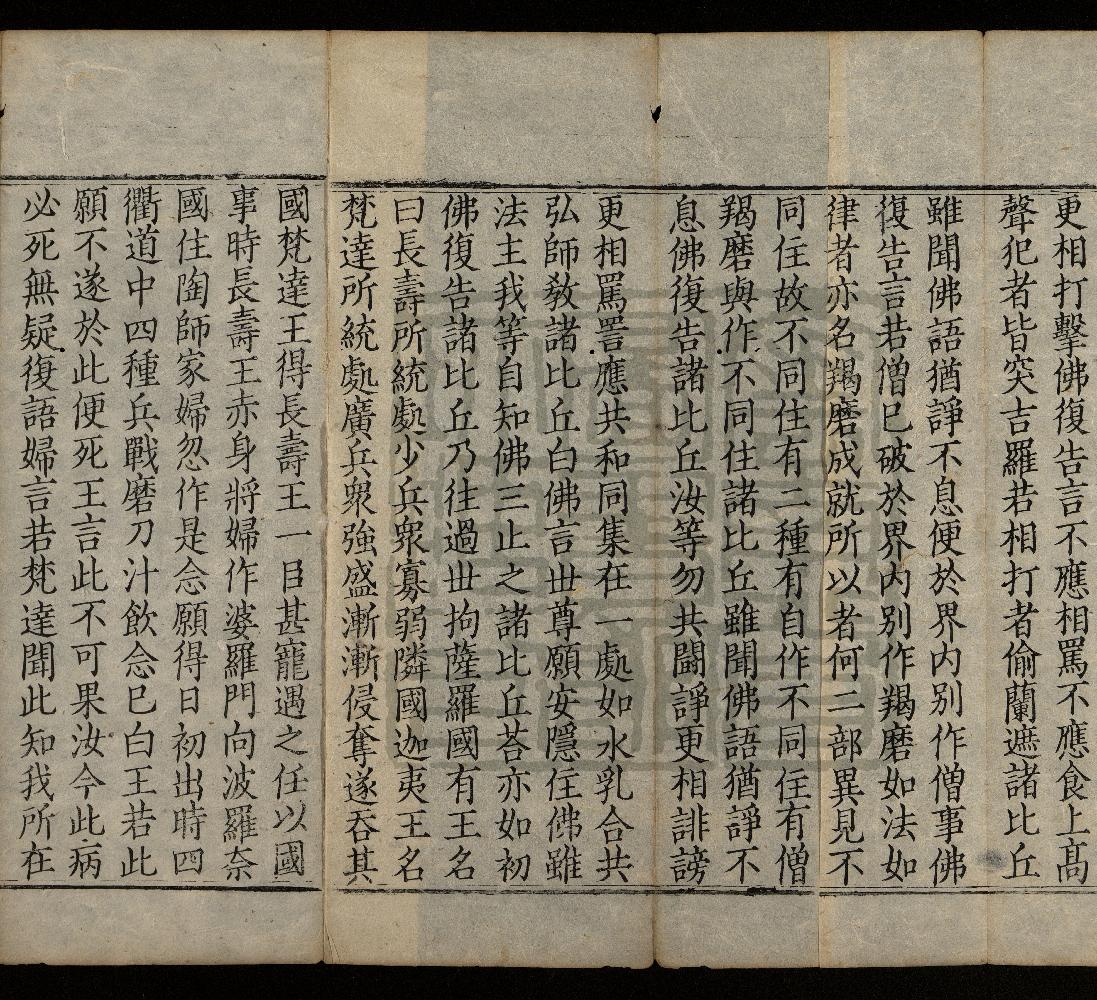 更相打擊佛復告言不應相罵不應食上高
聲犯者皆突吉羅若相打者偷蘭遮諸比丘
雖聞佛語猶諍不息便於界内别作僧事佛
復告言若僧巳破於界内别作羯磨如法如
律者亦名羯磨成就所以者何二部異見不
同住故不同住有二種有自作不同住有僧
羯磨與作不同住諸比丘雖聞佛語猶諍不
息佛復告諸比丘汝等勿共鬪諍更相誹謗
更相罵詈應共和同集在一處如水乳合共
弘師敎諸比丘白佛言世尊願安隱住佛雖
法主我等自知佛三止之諸比丘荅亦如初
佛復告諸比丘乃往過世拘薩羅國有王名
曰長壽所統處少兵衆寡弱隣國迦夷王名
梵達所統處廣兵衆強盛漸漸侵奪遂吞其
國梵達王得長壽王一目甚寵遇之任以國
事時長壽王赤身將婦作婆羅門向波羅奈
國住陶師家婦忽作是念願得日初出時四
衢道中四種兵戰磨刀汁飲念巳白王若此
願不遂於此便死王言此不可果汝今此病
必死無疑復語婦言若梵達聞此知我所在